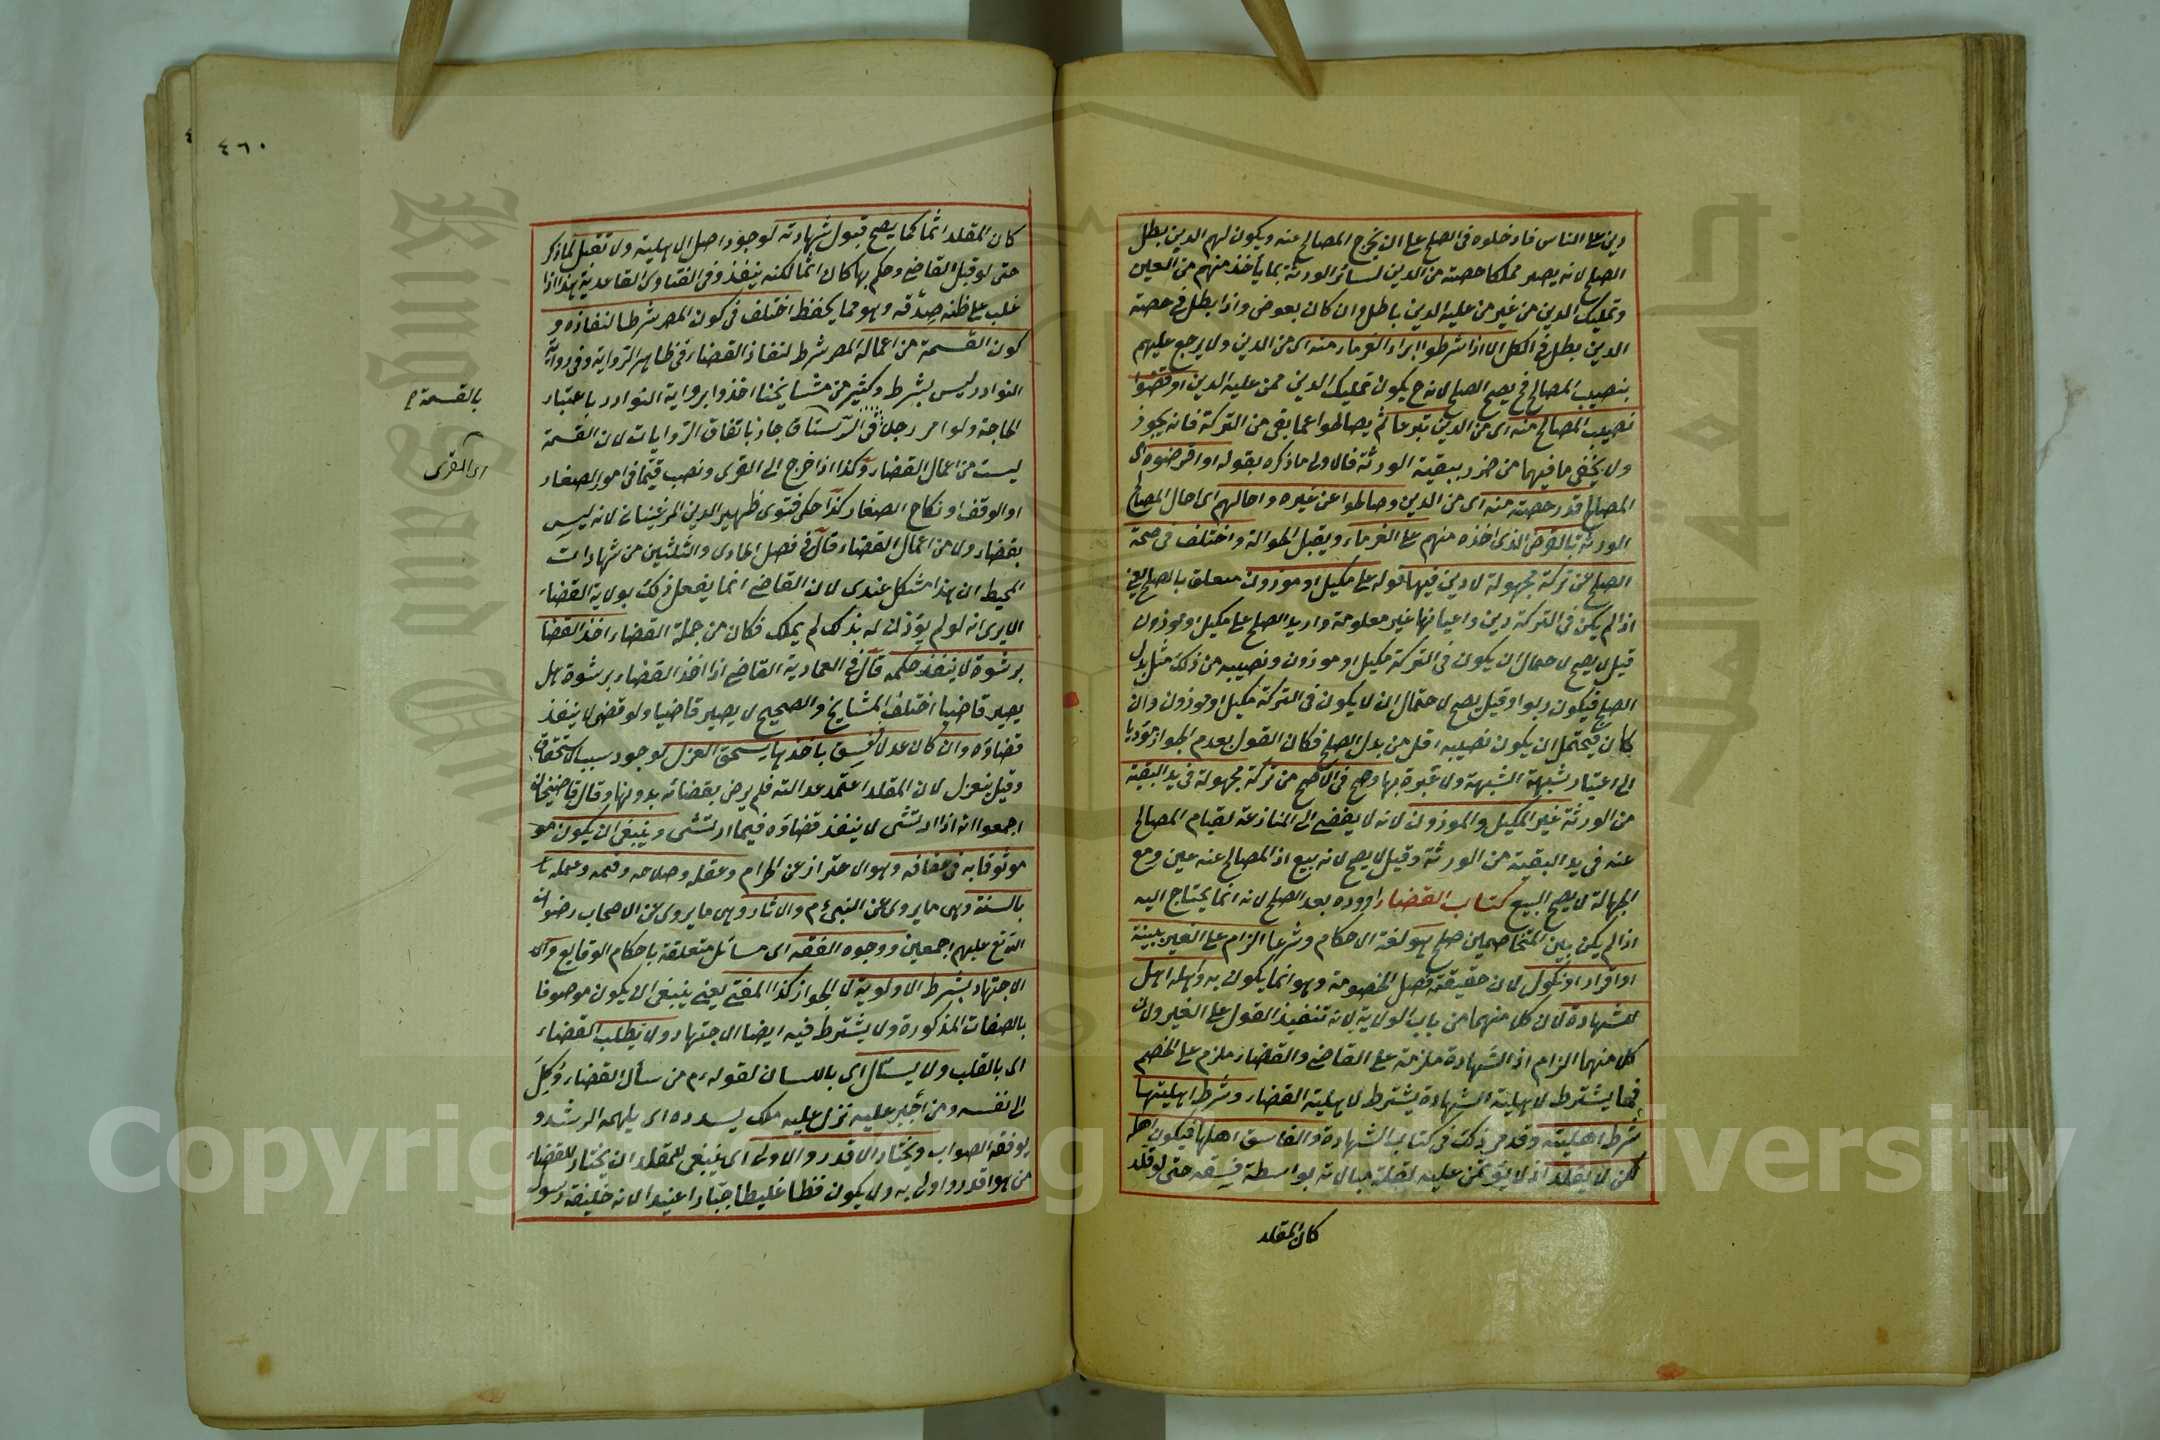 دين على الناس فادخلوه في الصلح على ان يخرج المصالح عنه ويكون لهم الدين بطل
الصلح لانه يصير مملكا حصته من الدين لسائر الورثة بما يأخذ منهم من العين
وتمليك الدين من غير من عليه الدين باطل وان كان بعوض واذا بطل في حصة
الدين بطل في الكل الا اذا شرطوا ابراء الغرماء منه اى من الدين ولا يرجع عليهم
بنصيب المصالح فح يصح الصلح لانه ح يكون تمليك الدين ممن عليه الدين او قضوا
نصيب المصالح منه اى من الدين تبرعا ثم يصالحوا عما بقى من التركة فانه يجوز
ولا يخفى ما فيهما من ضرر ببقية الورثة فالاولى ما ذكره بقوله او اقرضوه اى
المصالح قدر حصته منه اى من الدين وصالحوا عن غيره واحالهم اى احال المصالح
الورثة بالقرض الذى اخذه منهم على الغرماء ويقبل الحوالة واختلف في صحة
الصلح عن تركة مجهولة لا دين فيها قوله على مكيل او موزون متعلق بالصلح يعني
اذا لم يكن في التركة دين واعيانها غير معلومة واريد الصلح على مكيل او موزون
قيل لا يصح لاحتمال ان يكون في التركة مكيل او موزون ونصيبه من ذلك مثل بدل
الصلح فيكون ربوا وقيل يصح لاحتمال ان لا يكون في التركة مكيل او موزون وان
كان فيحتمل ان يكون نصيبه اقل من بدل الصلح فكان القول بعدم الجواز مؤديا
الى اعتبار شبهة الشبهة ولا عبرة بها وصح في الاصح عن تركة مجهولة في يد البقية
من الورثة غير المكيل والموزون لانه لا يفضي الى المنازعة لقيام المصالح
عنه في يد البقية من الورثة وقيل لا يصح لانه بيع اذ المصالح عنه عين ومع
الجهالة لا يصح البيع كتاب القضاء اورده بعد الصلح لانه انما يحتاج اليه
اذا لم يكن بين المتخاصمين صلح هو لغة الاحكام وشرعا الزام على الغير ببينة
او اقرار او نكول لان حقيقته فصل الخصومة وهو انما يكون به واهله اهل
للشهادة لان كلا منهما من باب الولاية لانه تنفيذ القول على الغير ولان
كلا منهما الزام اذ الشهادة ملزمة على القاضي والقضاء ملزم على الخصم
فما يشترط لاهلية الشهادة يشترط لاهلية القضاء وشرط اهليتها
شرط اهليته وقد مر ذلك في كتاب الشهادة والفاسق اهلها فيكون اهله
لكن لا يقلد اذ لا يؤتمن عليه لقلة مبالاته بواسطة فسقه حتى لو قلد
كان المقلد
٤٦٠
كان المقلد اثما كما يصح قبول شهادته لوجود اصل الاهلية ولا تقبل لما ذكر
حتى لو قبل القاضي وحكم بها كان اثما لكنه ينفذ وفي الفتاوى القاعدية هذا اذا
غلب على ظنه صدقه وهو مما يحفظ اختلف في كون المصر شرطا لنفاذه و
كون القسمة من اعماله المصر شرط لنفاذ القضاء في ظاهر الرواية وفي رواية
النوادر ليس بشرط وكثير من مشايخنا اخذوا برواية النوادر باعتبار
الحاجة ولو امر رجلا في الرستاق جاز باتفاق الروايات لان القسمة
بالقسمة
ليست من اعمال القضاء وكذا اذا خرج الى القرى ونصب قيما في امور الصغار
اى القرى
او الوقف او نكاح الصغار كذا حكى فتوى ظهير الدين المرغيناني لانه ليس
بقضاء ولا من اعمال القضاء قال في فصل الحادى والثلثين من شهادات
المحيط ان هذا مشكل عندى لان القاضي انما يفعل ذلك بولاية القضاء
الا يرى انه لو لم يؤذن له بذلك لم يملك فكان من جملة القضاء اخذ القضا
برشوة لا ينفذ حكمه قال في العمادية القاضي اذا اخذ القضاء برشوة هل
يصير قاضيا اختلف المشايخ والصحيح لا يصير قاضيا ولو قضى لا ينفذ
قضاؤه وان كان عدلا ففسق باخذها يستحق العزل لوجود سبب الاستحقاق
وقيل ينعزل لان المقلد اعتمد عدالته فلم يرض بقضائه بدونها وقال قاضيخان
اجمعوا انه اذا ارتشى لا ينفذ قضاؤه فيما ارتشى وينبغى ان يكون مو
موثوقا به في عفافه وهو الاحتراز عن الحرام وعقله وصلاحه وفهمه وعلمه
بالسنة وهى ما يروى عن النبي ءم والاثار وهى ما يروى عن الاصحاب رضوان
الله تع عليهم اجمعين ووجوه الفقه اى مسائل متعلقة باحكام الوقايع و
الاجتهاد شرط الاولوية لا الجواز كذا المفتي يعني ينبغى ان يكون موصوفا
بالصفات المذكورة ولا يشترط فيه ايضا الاجتهاد ولا يطلب القضاء
اى بالقلب ولا يسئال اى باللسان لقوله ءم من سأل القضاء وكل
الى نفسه ومن أجبر عليه نزل عليه ملك يسدده اى يلهمه الرشد و
يوفقه الصواب ويختار الاقدر والاولى اى ينبغى للمقلد ان يختار للقضاء
من هو اقدر واولى به ولا يكون فظا غليظا جبارا عنيدا لانه خليفة رسول
Copyright © King Saud University
King Saud University